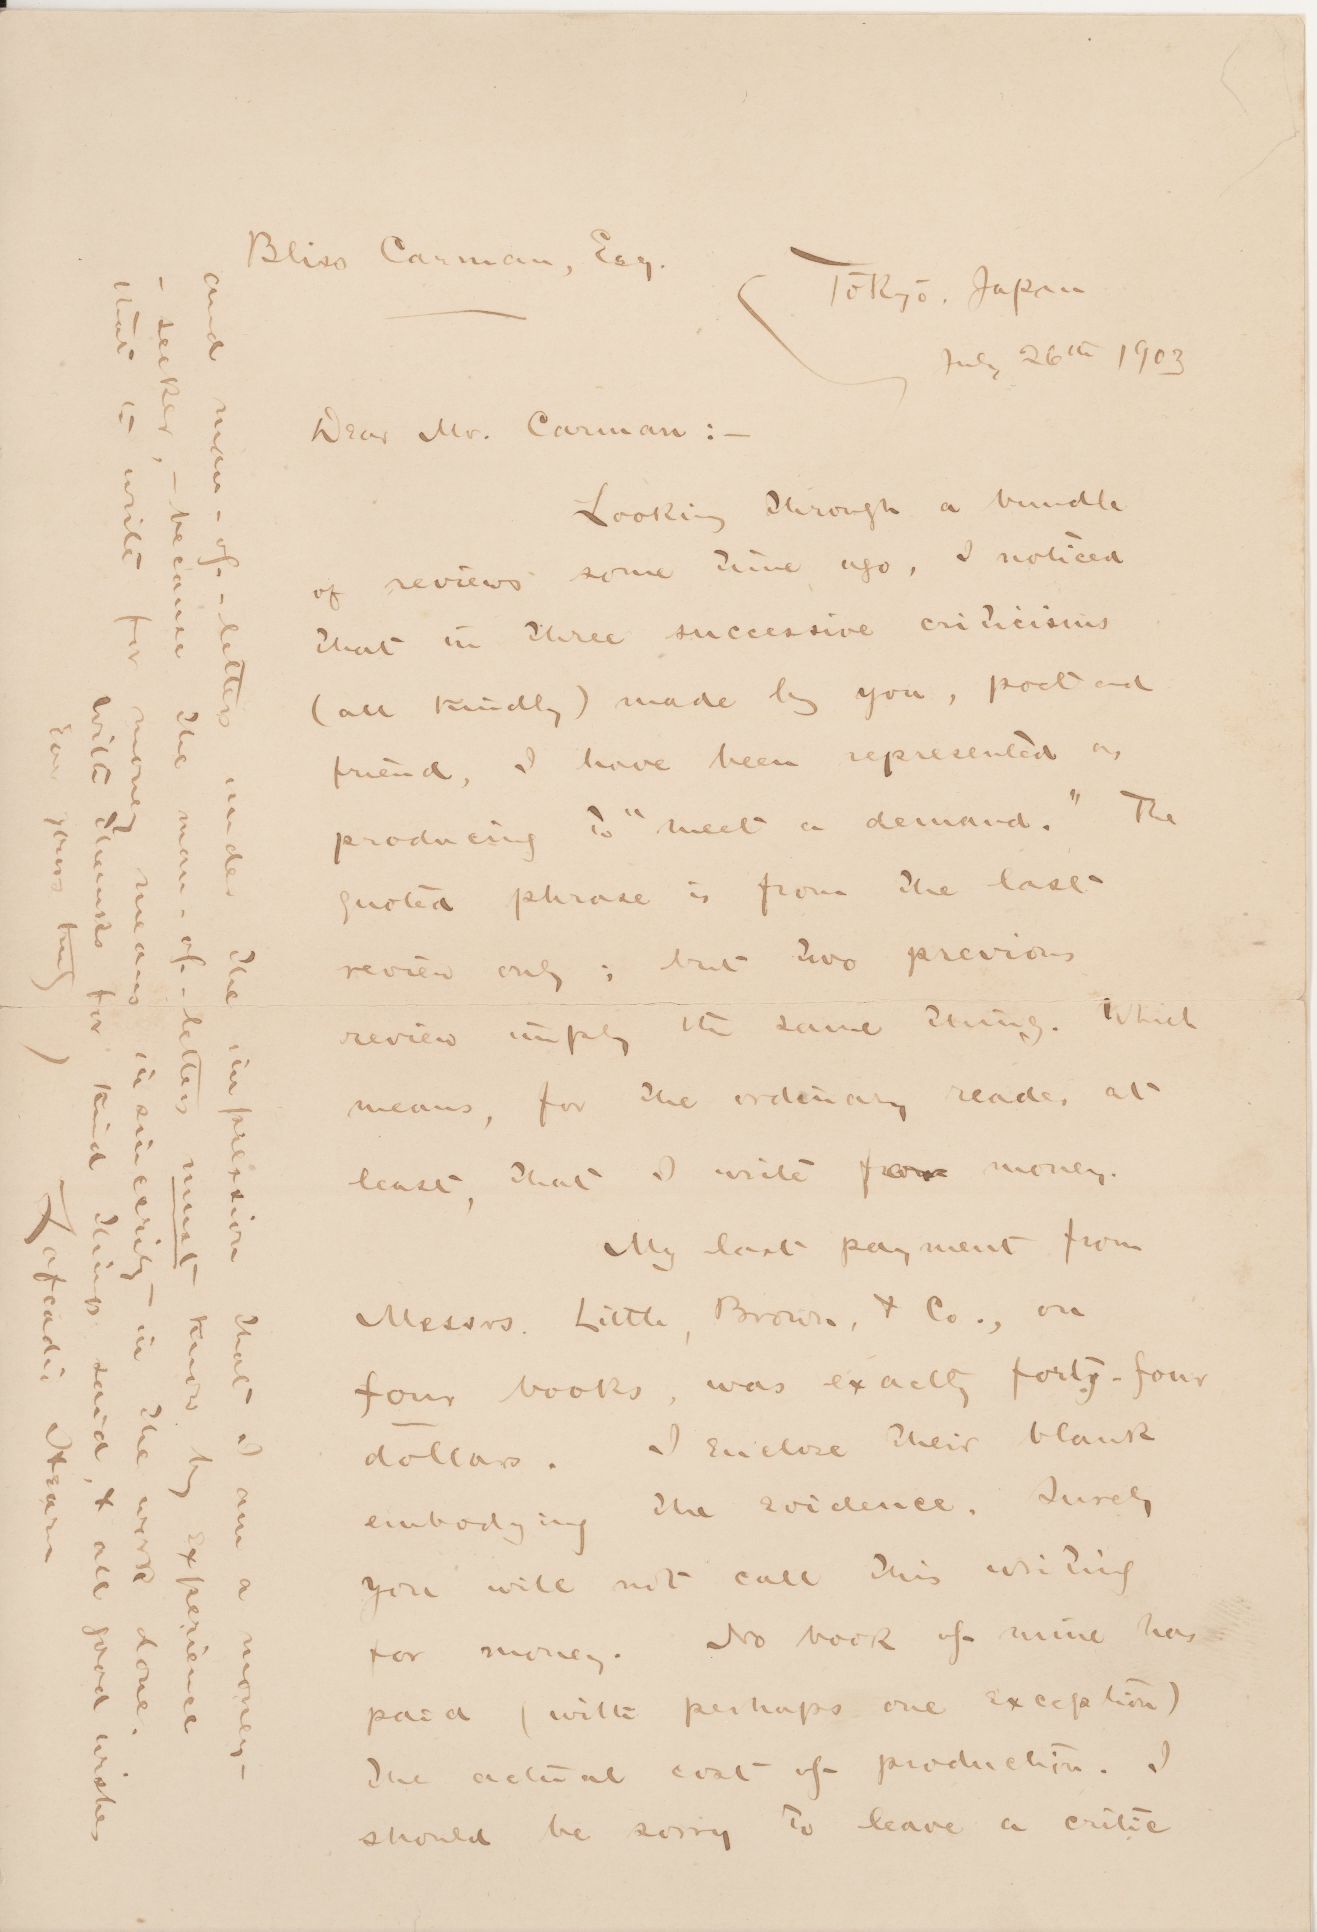 Bliss Carman, Esq.
Tōkyō, Japan
July 26th 1903
Dear Mr. Carman :—
Looking through a bundle
of reviews some time ago, I noticed
that in three successive criticisms
(all kindly) made by you, poet and
friend, I have been represented as
producing to "meet a demand." The
quoted phrase is from the last
review only; but two previous
review imply the same thing. Which
means, for the ordinary reader at
least, that I write for money.
My last payment from
Messrs. Little, Brown, & Co., on
four books, was exactly forty-four
dollars. I enclose their blank
embodying the evidence. Surely
you will not call this writing
for money. No book of mine has
paid (with perhaps one exception)
the actual cost of production. I
should be sorry to leave a critic
and man-of-letters under the impression that I am a money-
-seeker,—because the man-of-letters must know by experience
that to write for money means insincerity in the work done.
With thanks for kind things said, & all good wishes
Ever yours truly
Lafcadio Hearn